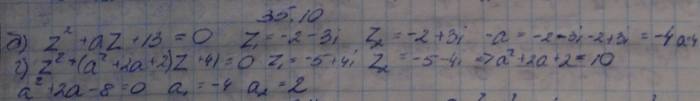 35.10
б) z² + az + 13 = 0 z₁ = -2 - 3i z₂ = -2 + 3i -a = -2 - 3i - 2 + 3i = -4 a=4
г) z² + (a² + 2a + 2)z + 41 = 0 z₁ = -5 + 4i z₂ = -5 - 4i => a² + 2a + 2 = 10
a² + 2a - 8 = 0 a₁ = -4 a₂ = 2